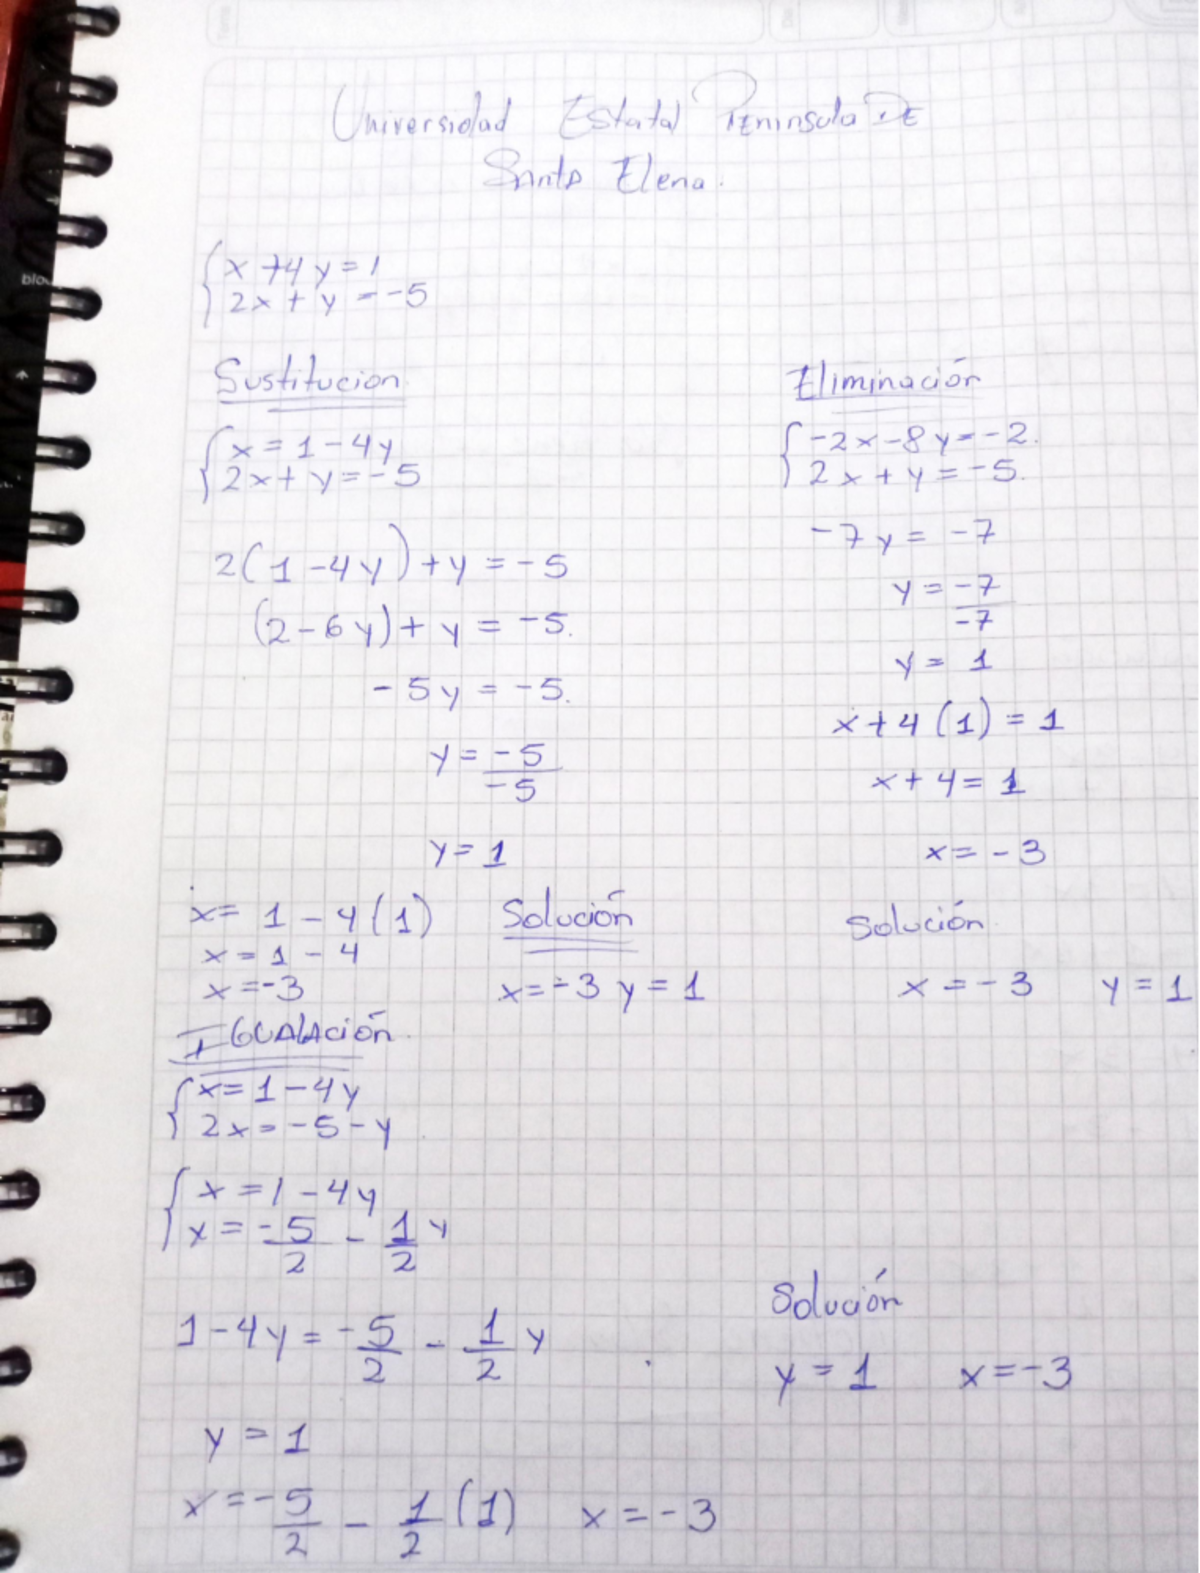 Universidad Estatal Peninsula DE
Santa Elena.
x + 4y = 1
2x + y = -5
Sustitucion
x = 1 - 4y
2x + y = -5
2(1 - 4y) + y = -5
(2 - 6y) + y = -5.
-5y = -5.
y = -5/-5
y = 1
x = 1 - 4(1)
x = 1 - 4
x = -3
Solución
x = -3 y = 1
Eliminación
-2x - 8y = -2.
2x + y = -5.
-7y = -7
y = -7/-7
y = 1
x + 4(1) = 1
x + 4 = 1
x = -3
Solución
x = -3 y = 1
IGUALACión
x = 1 - 4y
2x = -5 - y
x = 1 - 4y
x = -5/2 - 1/2 y
1 - 4y = -5/2 - 1/2 y
y = 1
x = -5/2 - 1/2 (1) x = -3
Solución
y = 1 x = -3